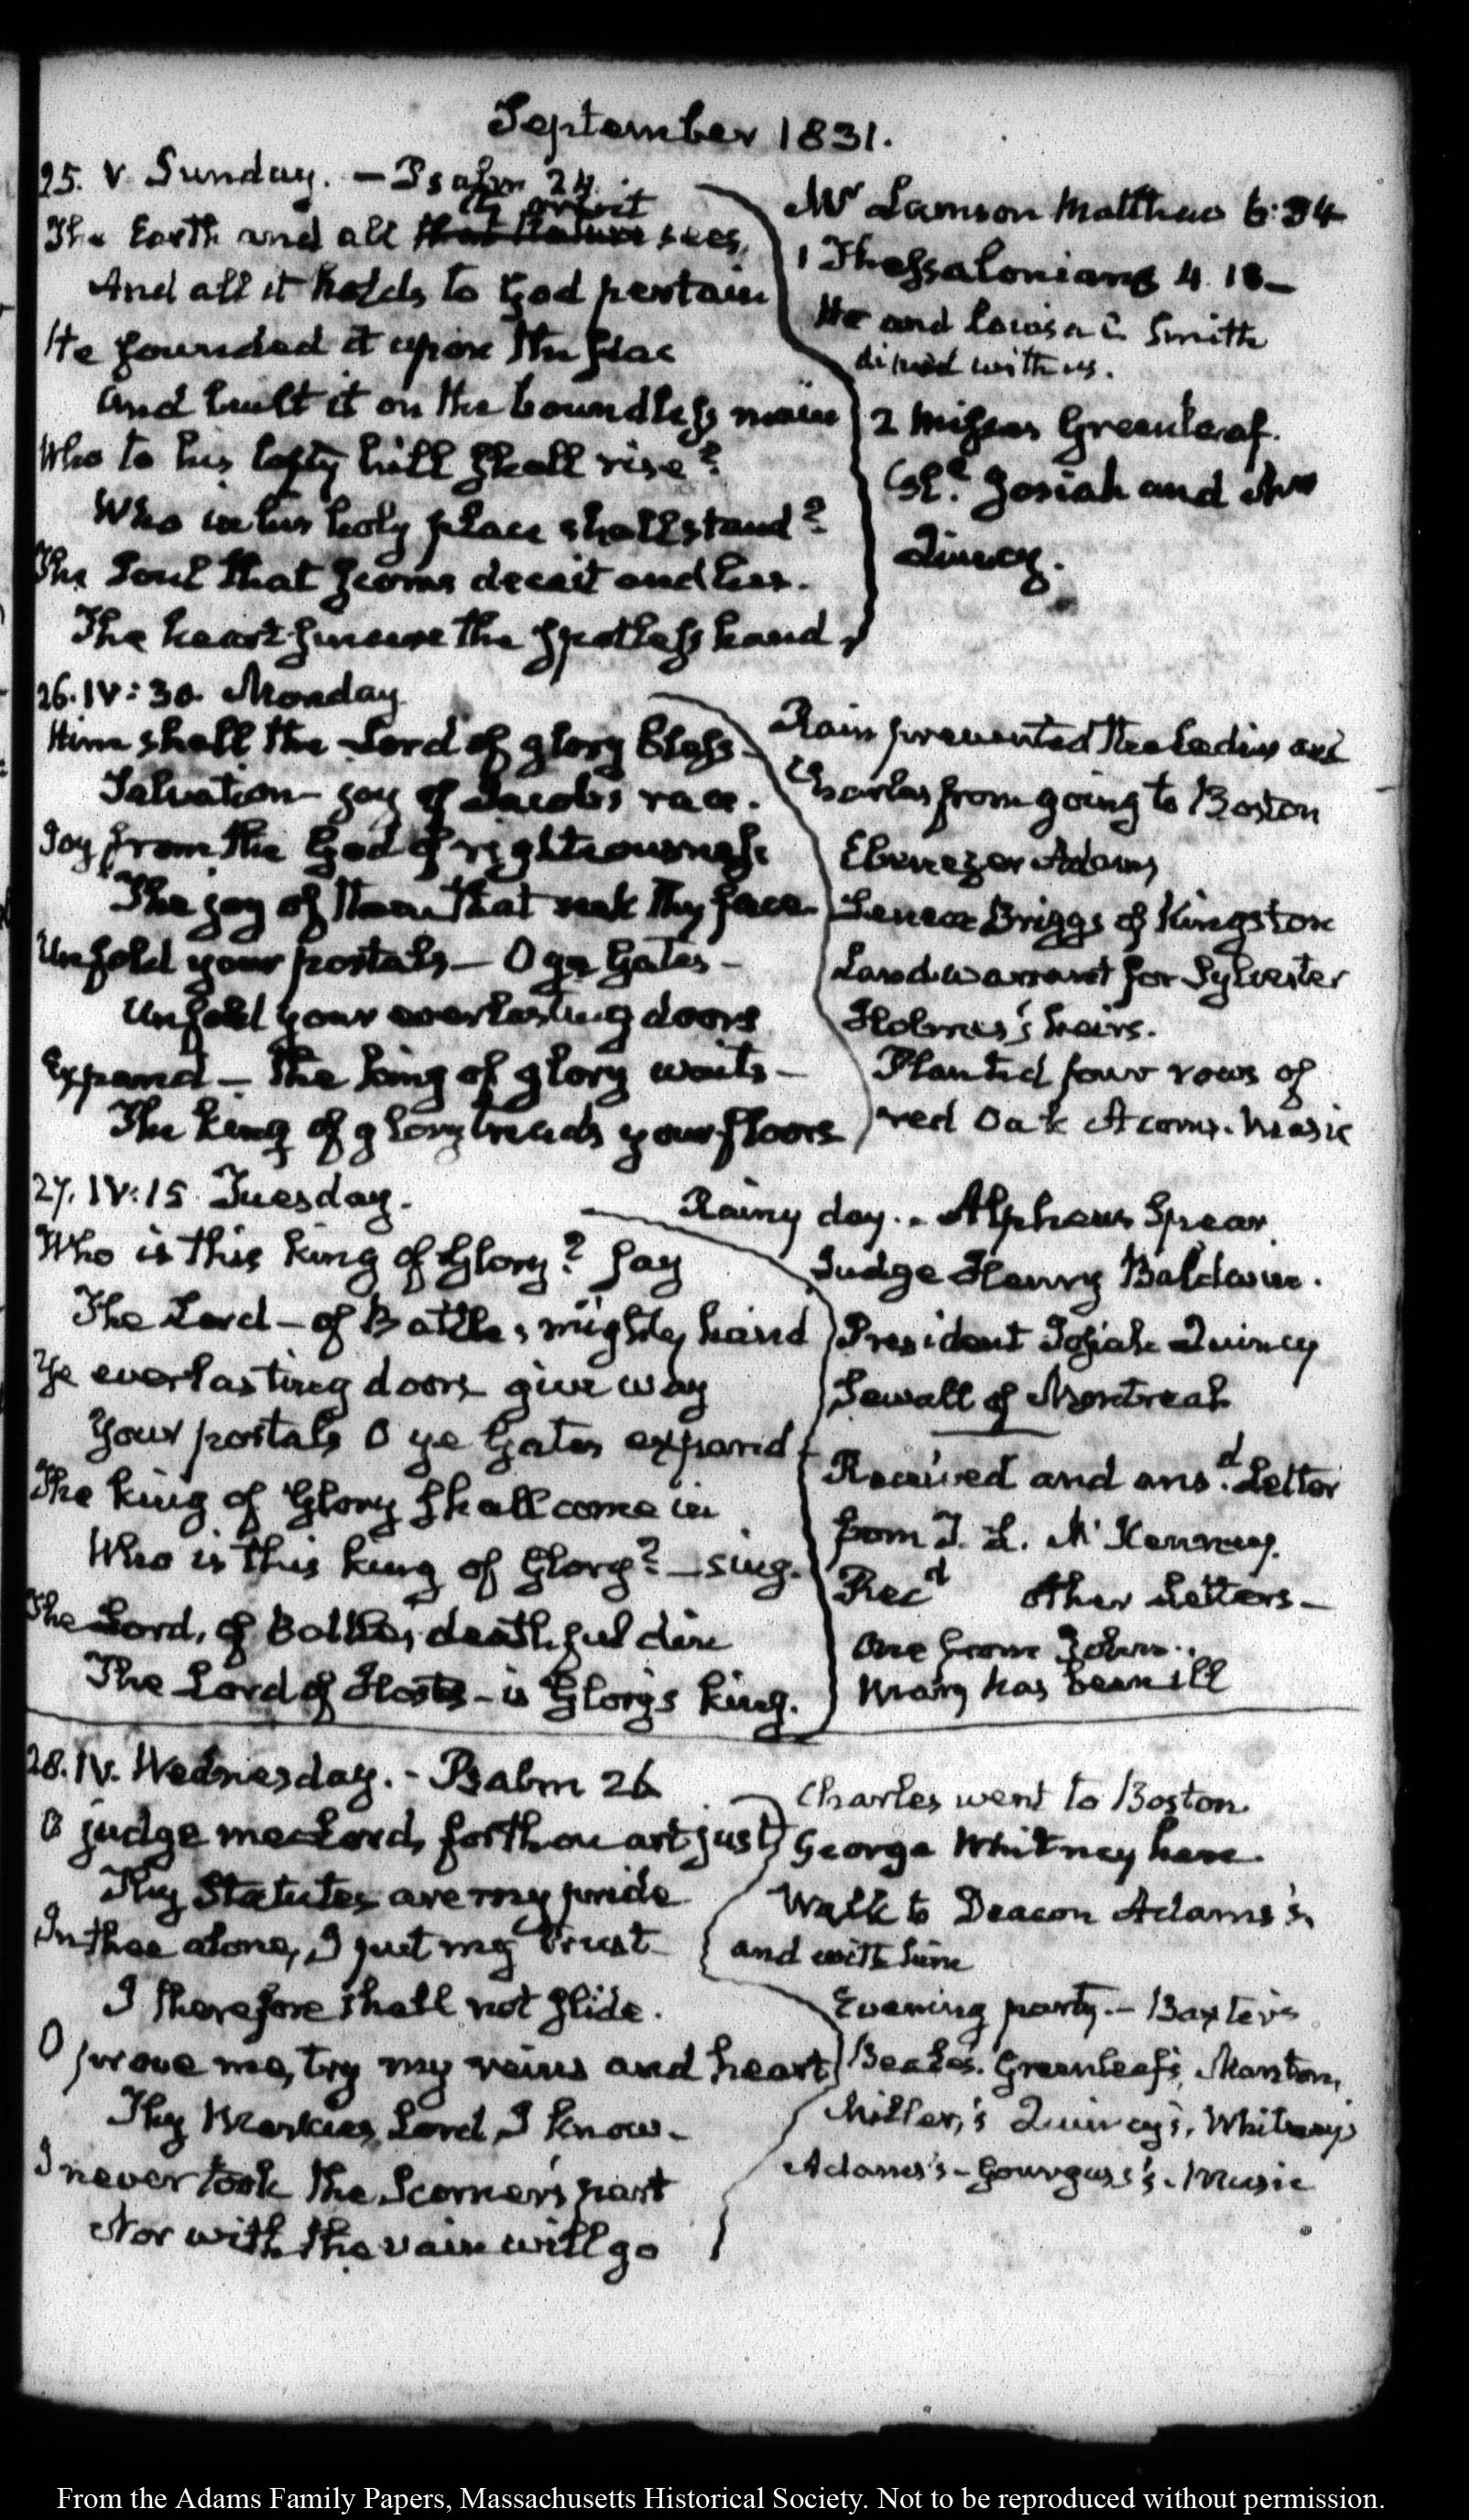 September 1831.
25. V. Sunday. — Psalm 24.
its orbit
The Earth and all that Nature sees,
And all it holds to God pertain
He founded it upon the seas
And built it on the boundless main
Who to his lofty hill shall rise?
Who in his holy place shall stand?
The Soul that scorns deceit and lies.
The heart sincere the spotless hand,
Mr Lamson Matthew 6:34
1 Thessalonians 4. 18—
He and Louisa C Smith
dined with us.
2 Misses Greenleaf.
Josiah and Mrs
Quincy.
26. IV: 30. Monday
Him shall the Lord of glory bless—
Salvation— joy of Jacob's race.
Joy from the God of righteousness.
The joy of them that seek thy face.
Unfold your portals— O ye Gates—
Unfold your everlasting doors
Expand— The king of glory waits—
The king of glory treads your floors
Rain prevented the Ladies and
Charles from going to Boston
Ebenezer Adams
Seneca Briggs of Kingston
Land warrant for Sylvester
Holmes's heirs.
Planted four rows of
red Oak Acorns. Music
27. IV: 15. Tuesday.
Who is this king of Glory? say
The Lord— of Battles, mighty hand
Ye everlasting doors give way
Your portals O ye Gates expand—
The king of Glory shall come in
Who is this king of Glory?— sing.
The Lord, of Battles, deathful din
The Lord of Hosts— is Glory's king.
Rainy day. . Alpheus Spear.
Judge Henry Baldwin.
President Josiah Quincy
Sewall of Montreal
Received and ansd. Letter
from T. L. McKenney.
Recd other Letters—
one from John.
Mary has been ill
28. IV. Wednesday. - Psalm 26
O judge me Lord, for thou art just
Thy Statutes are my pride
In thee alone, I put my trust
I therefore shall not slide.
O prove me, try my reins and heart
Thy Mercies, Lord, I know—
I never took the Scorner's part
Nor with the vain will go
Charles went to Boston.
George Whitney here.
Walk to Deacon Adams's,
and with him
Evening party.— Baxter's
Beale's. Greenleaf's, Marston,
Miller's Quincy's, Whitney's
Adams's— Gourgas's. Music
From the Adams Family Papers, Massachusetts Historical Society. Not to be reproduced without permission.